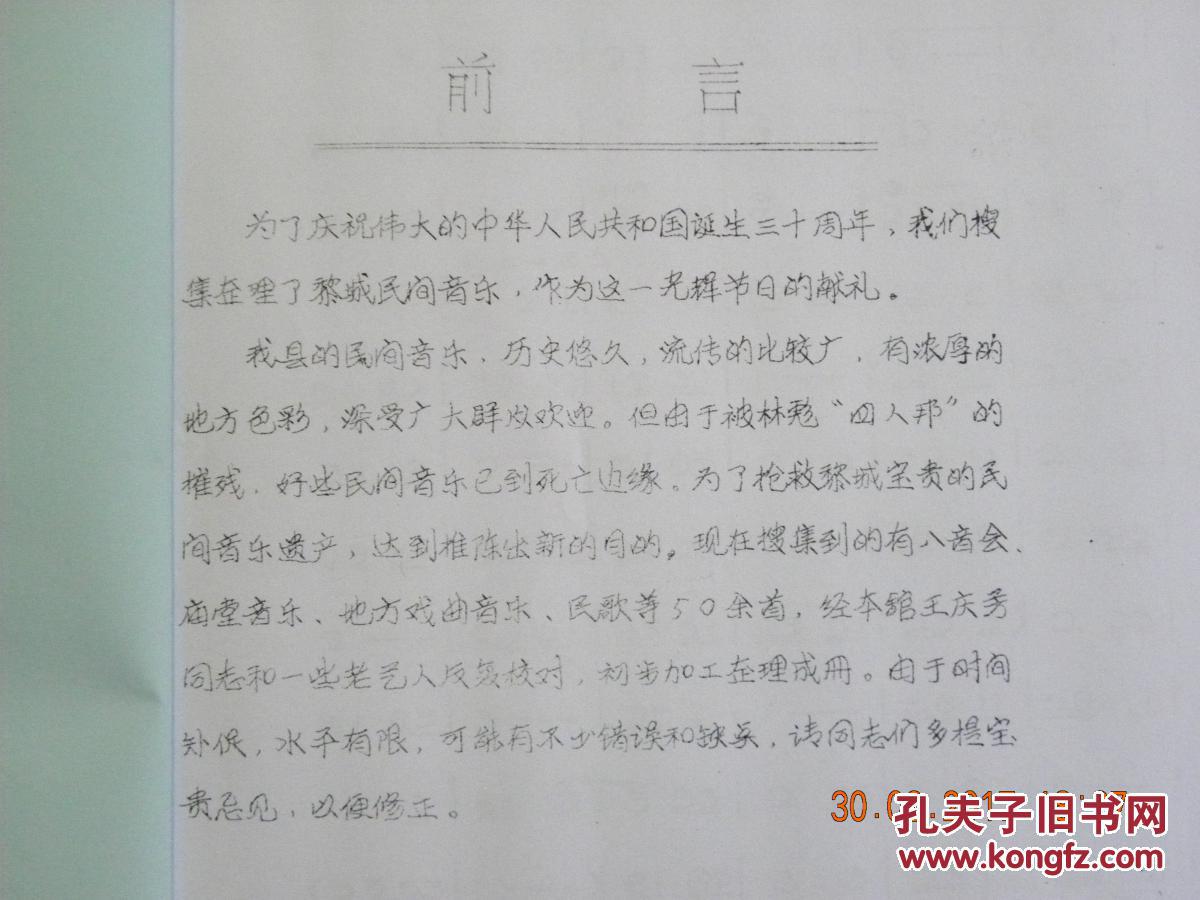 前言
为了庆祝伟大的中华人民共和国诞生三十周年，我们搜
集整理了黎城民间音乐，作为这一光辉节日的献礼。
我县的民间音乐．历史悠久，流传的比较广，有浓厚的
地方色彩，深受广大群众欢迎。但由于被林彪“四人邦”的
摧残．好些民间音乐已到死亡边缘。为了抢救黎城宝贵的民
间音乐遗产，达到推陈出新的目的。现在搜集到的有八音会、
庙堂音乐、地方戏曲音乐、民歌等50余首，经本馆王庆秀
同志和一些老艺人反复核对，初步加工整理成册。由于时间
短促，水平有限，可能有不少错误和缺点，请同志们多提宝
贵意见，以便修正。
孔夫子旧书网
www.kongfz.com